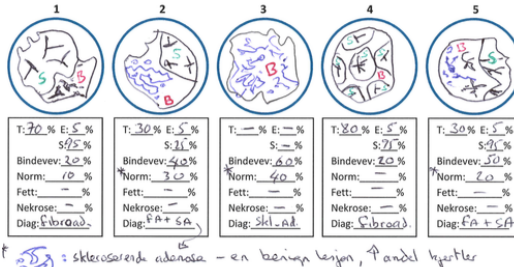 1 2 3 4 5
S B
S B
B
S S S S B
B S
T: 70 % E: 5 %
S: 95 %
Bindevev: 20 %
Norm: 10 %
Fett: - %
Nekrose: - %
Diag: fibroad.
T: 30 % E: 5 %
S: 95 %
Bindevev: 40 %
* Norm: 30 %
Fett: - %
Nekrose: - %
Diag: FA + SA
T: - % E: - %
S: - %
Bindevev: 60 %
* Norm: 40 %
Fett: - %
Nekrose: - %
Diag: Skl. Ad.
T: 80 % E: 5 %
S: 95 %
Bindevev: 20 %
Norm: - %
Fett: - %
Nekrose: - %
Diag: fibroad.
T: 30 % E: 5 %
S: 95 %
Bindevev: 50 %
* Norm: 20 %
Fett: - %
Nekrose: - %
Diag: FA + SA
* : skleroserende adenose - en benign lesjon, ↑ andel kjertler